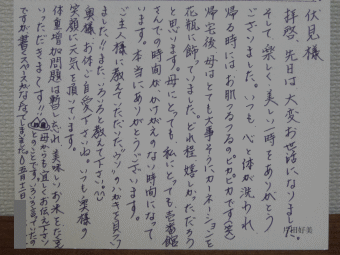 伏見様
拝啓、先日は大変お世話になりました。
そして楽しく美しい一時をありがとう
ございました。いつも心と体が洗われ
帰る時にはお肌つるつるのピカピカです(笑)
帰宅後、母はとても大事そうにカーネーションを
花瓶に飾っていました。どれ程嬉しかっただろう
と思います。母にとっても、私にとっても壱番館
さんでの時間がかけがえのない時間になって
います。本当にありがとうございます。
ご主人様に教えていただいたヴィラのハガキを見つけ
ました!!また、いろいろと教えて下さい。
奥様、お体ご自愛下さいね。いつも奥様の
笑顔に元気を頂いています。
体重増加問題は暫し忘れ、美味しいお米をたき
いただきます!!母からも宜しくお伝え下さい
とのことです。
ですが書くスペースがなくなってしまいました 五月十二日